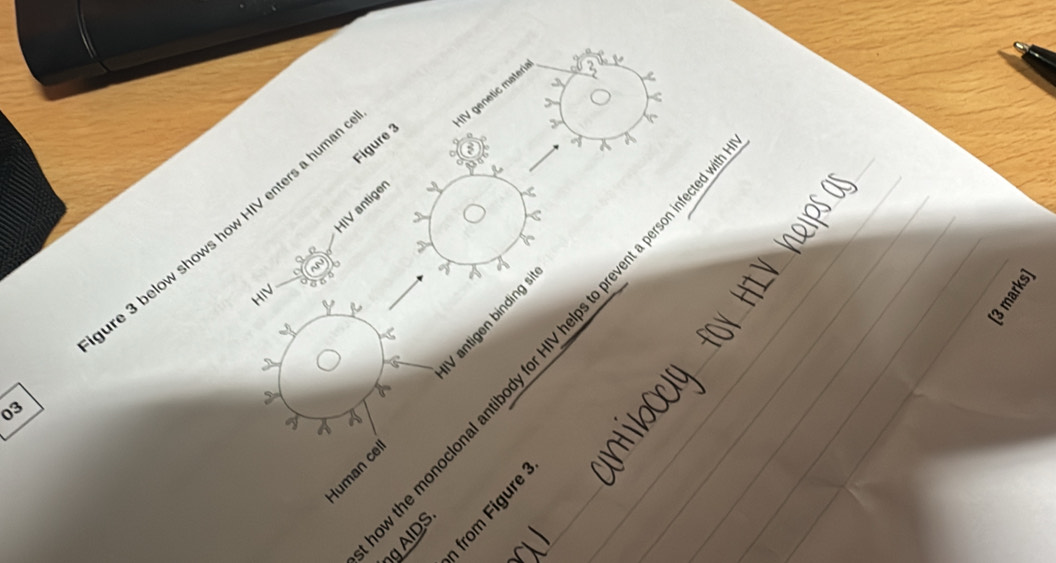 03
Figure 3 below shows how HIV enters a human cell.
Figure 3
HIV
HIV antigen
HIV genetic material
Human cell
HIV antigen binding site
how the monoclonal antibody for HIV helps to prevent a person infected with HIV
AIDS.
from Figure 3.
[3 marks]
antibody for HIV helps as